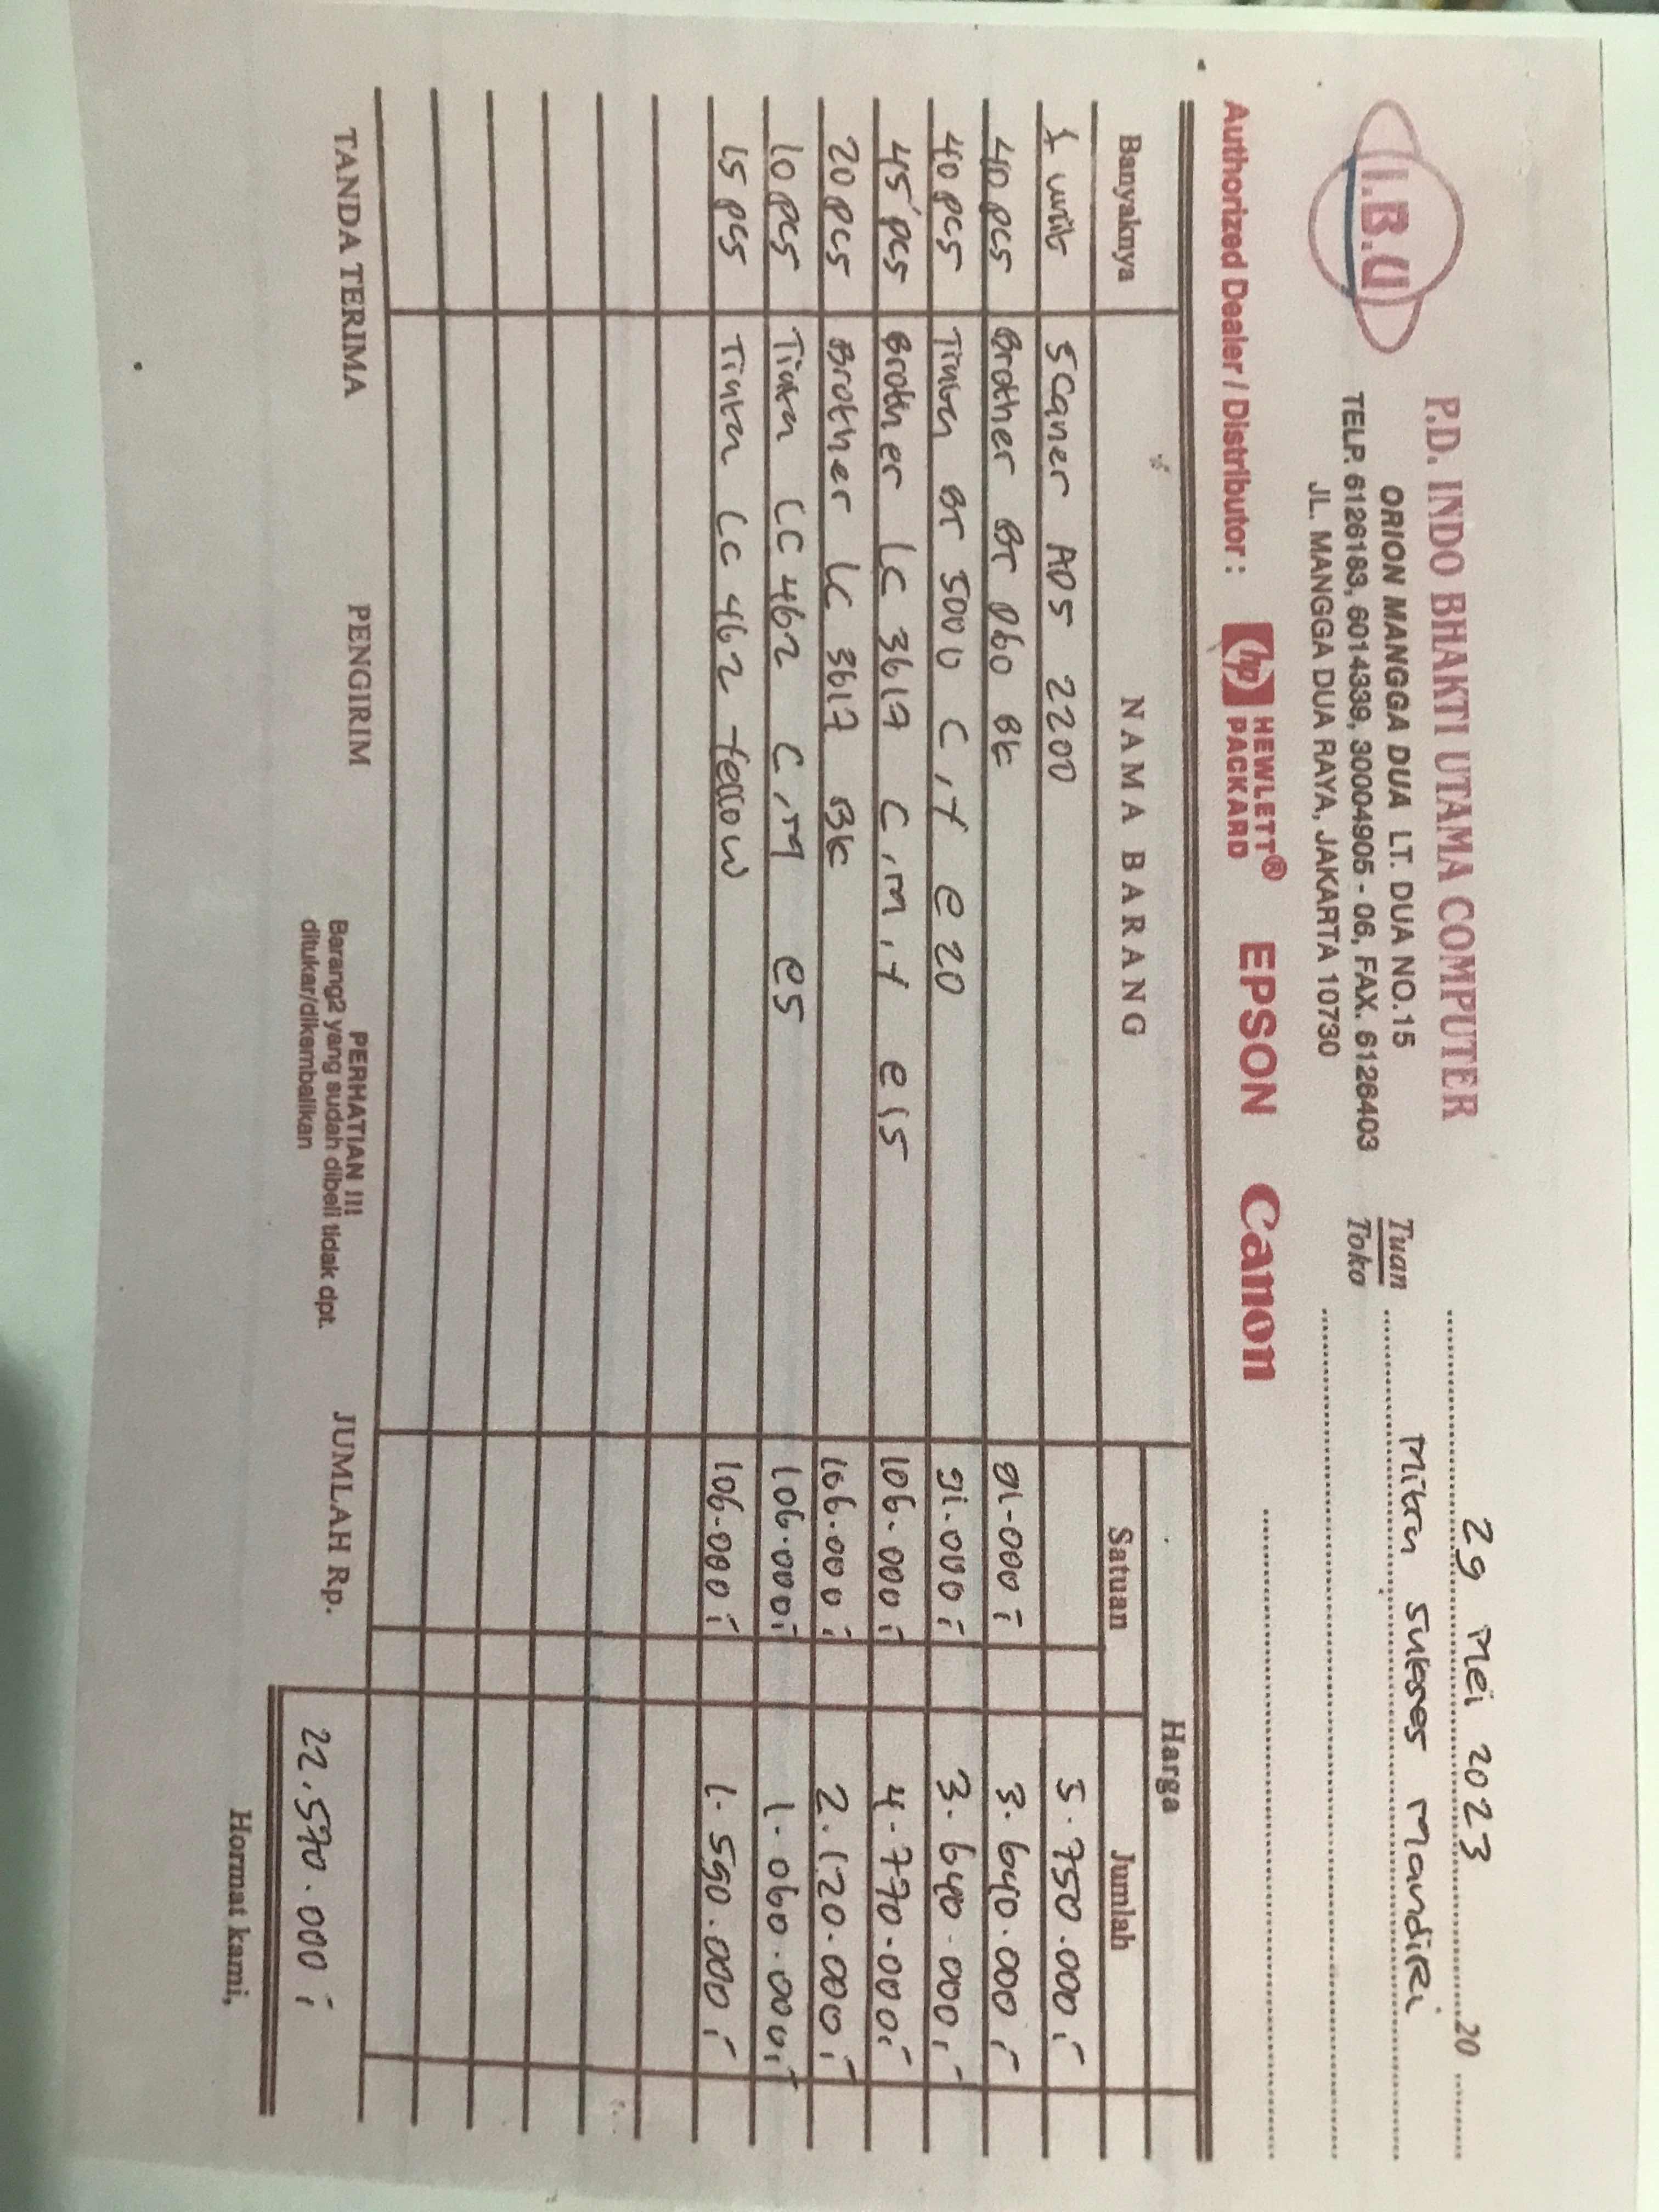 I.B.U
P.D. INDO BHAKTI UTAMA COMPUTER
ORION MANGGA DUA LT. DUA NO.15
TELP. 6126183, 6014339, 30004905 - 06, FAX. 6126403
JL. MANGGA DUA RAYA, JAKARTA 10730
29 Mei 2023 20
Tuan Mitra Sukses Mandiri
Toko
Authorized Dealer / Distributor : hp HEWLETT® PACKARD EPSON Canon
Banyaknya NAMA BARANG Harga
Satuan Jumlah
1 unit Scaner ADS 2200 5.750.000
40 pcs Brother BT D60 BK 91.000 3.640.000
40 pcs Tinta BT 5000 C,Y @ 20 91.000 3.640.000
45 pcs Brother LC 3617 C,M,Y @ 15 106.000 4.770.000
20 pcs Brother LC 3617 BK 106.000 2.120.000
10 pcs Tinta LC 462 C,M @ 5 106.000 1.060.000
15 pcs Tinta LC 462 Yellow 106.000 1.590.000
TANDA TERIMA PENGIRIM PERHATIAN !!! JUMLAH Rp. 22.570.000
Barang2 yang sudah dibeli tidak dpt.
ditukar/dikembalikan
Hormat kami,